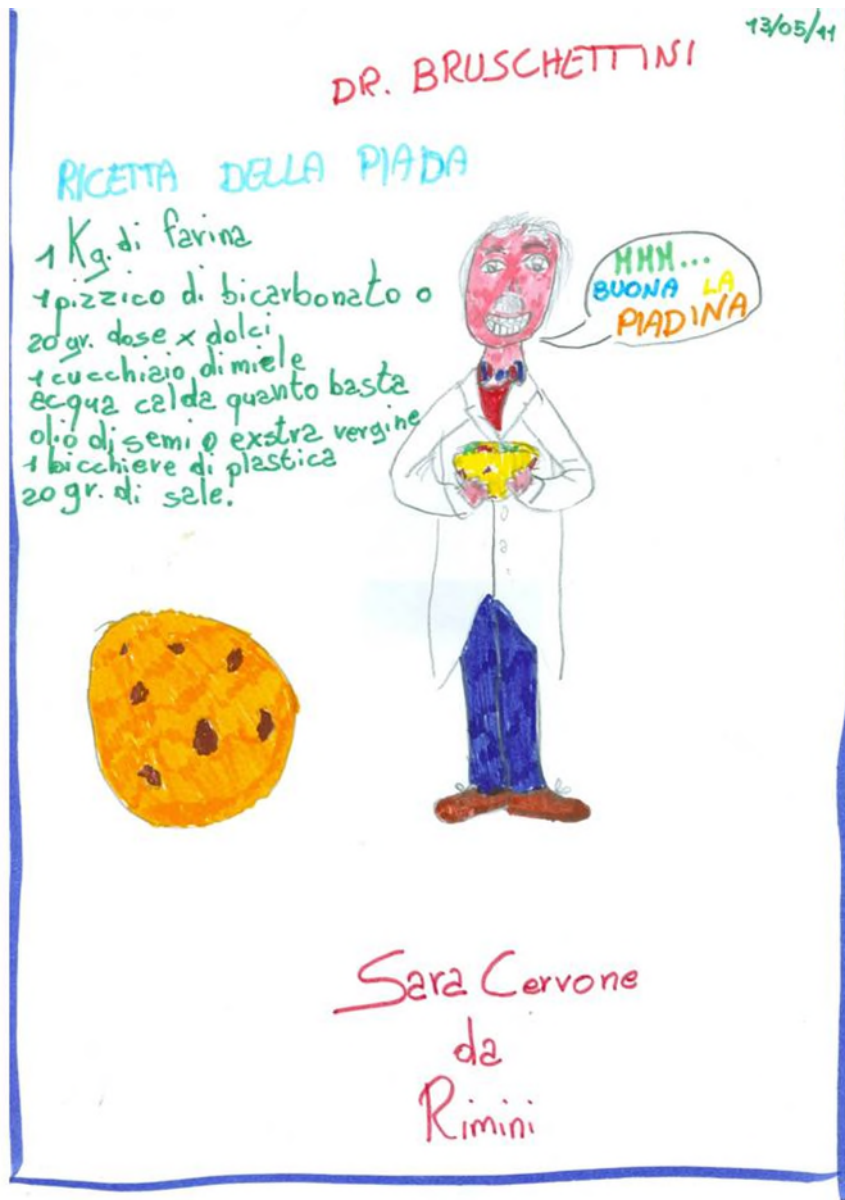 13/05/11
DR. BRUSCHETTINI
RICETTA DELLA PIADA
1 Kg. di farina
1 pizzico di bicarbonato o
20 gr. dose x dolci
1 cucchiaio di miele
acqua calda quanto basta
olio di semi o exstra vergine
1 bicchiere di plastica
20 gr. di sale.
MMM...
BUONA LA
PIADINA
Sara Cervone
da
Rimini